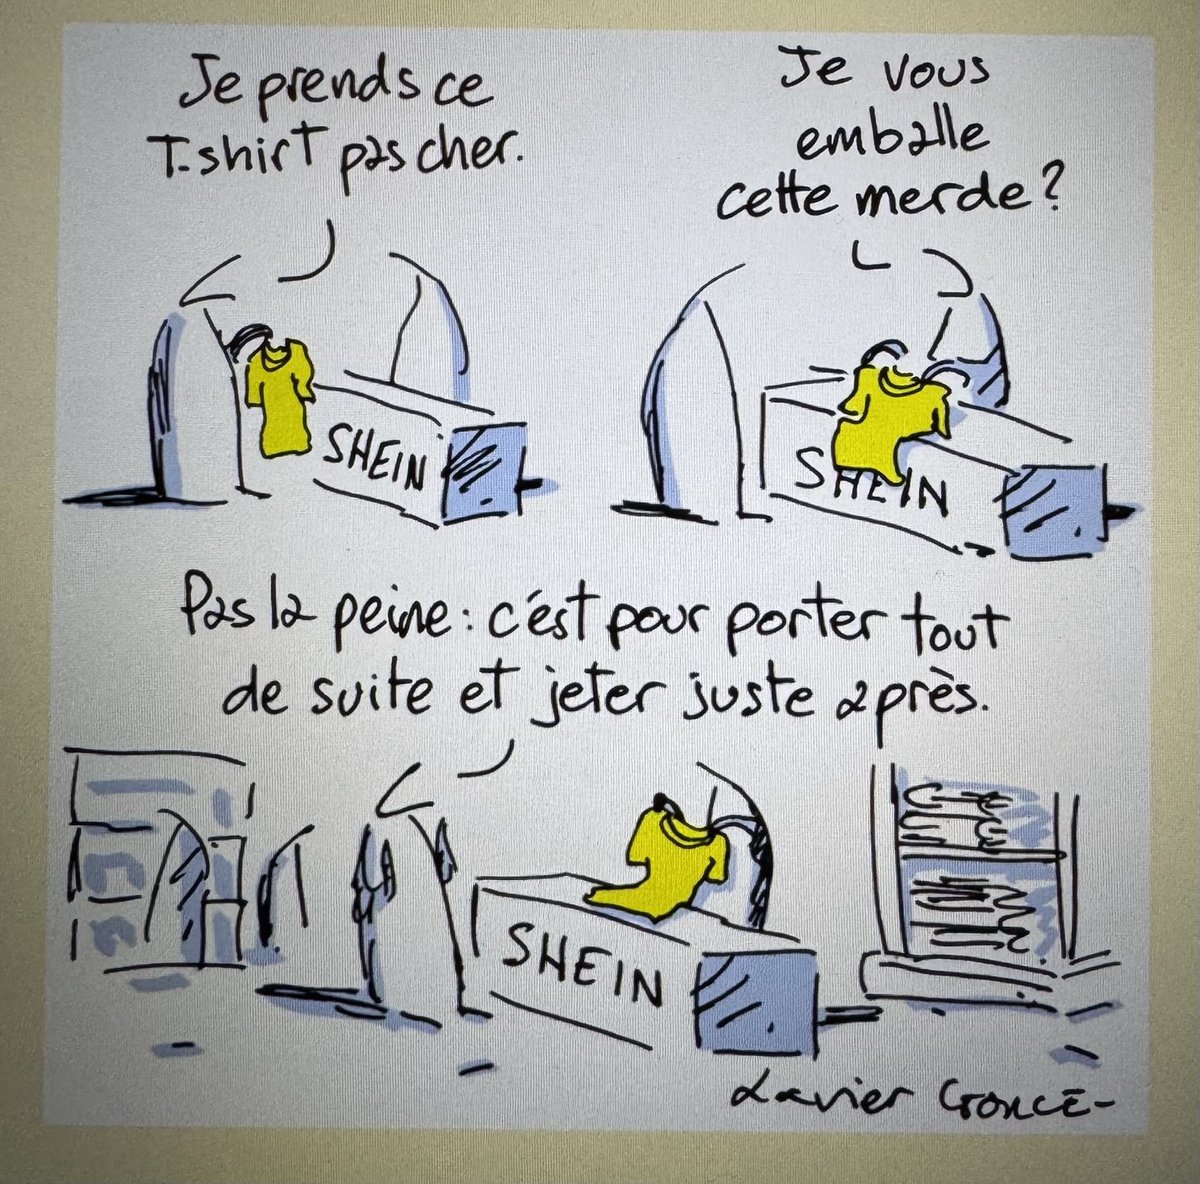 Je prends ce
T-shirt pas cher.
Je vous
emballe
cette merde?
SHEIN
SHEIN
Pas la peine: c'est pour porter tout
de suite et jeter juste après.
SHEIN
Xavier Gorce